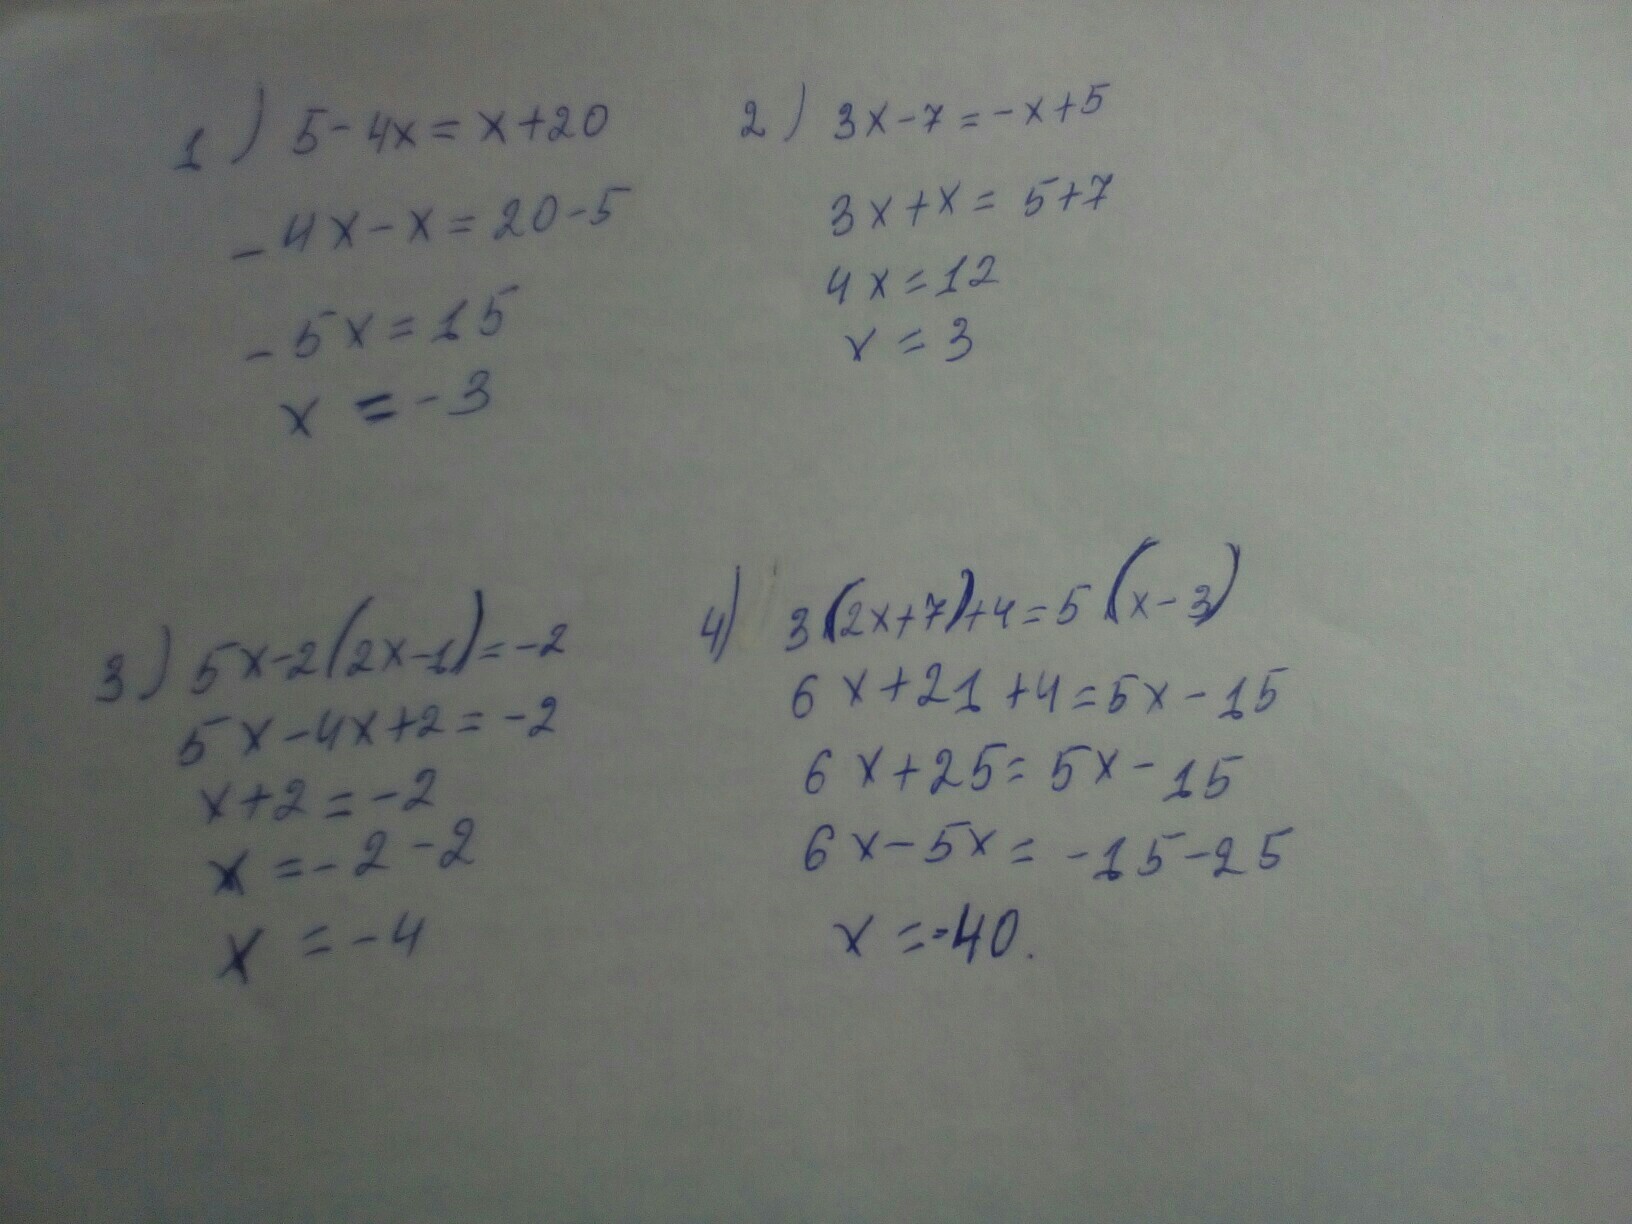 1) 5-4x=x+20
-4x-x=20-5
-5x=15
x=-3
2) 3x-7=-x+5
3x+x=5+7
4x=12
x=3
3) 5x-2(2x-1)=-2
5x-4x+2=-2
x+2=-2
x=-2-2
x=-4
4) 3(2x+7)+4=5(x-3)
6x+21+4=5x-15
6x+25=5x-15
6x-5x=-15-25
x=-40.